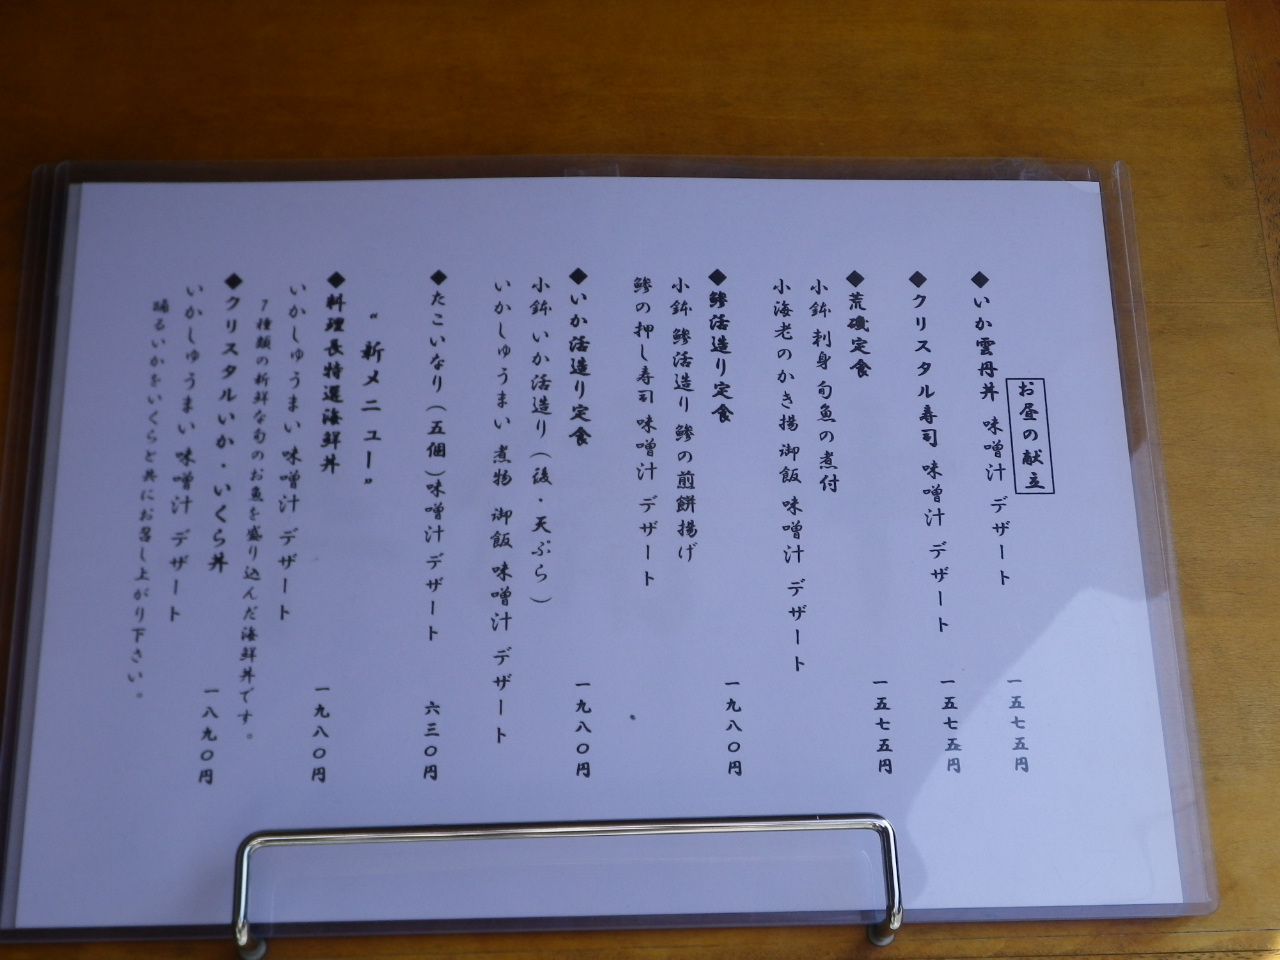 お昼の献立
◆いか雲丹丼 味噌汁 デザート 一五七五円
◆クリスタル寿司 味噌汁 デザート 一五七五円
◆荒磯定食 一五七五円
小鉢 刺身 旬魚の煮付
小海老のかき揚 御飯 味噌汁 デザート
◆鯵活造り定食 一九八〇円
小鉢 鯵活造り 鯵の煎餅揚げ
鯵の押し寿司 味噌汁 デザート
◆いか活造り定食 一九八〇円
小鉢 いか活造り(後・天ぷら)
いかしゅうまい 煮物 御飯 味噌汁 デザート
◆たこいなり(五個)味噌汁 デザート 六三〇円
“新メニュー”
◆料理長特選海鮮丼 一九八〇円
いかしゅうまい 味噌汁 デザート
7種類の新鮮な旬のお魚を盛り込んだ海鮮丼です。
◆クリスタルいか・いくら丼 一八九〇円
いかしゅうまい 味噌汁 デザート
踊るいかをいくらと共にお召し上がり下さい。